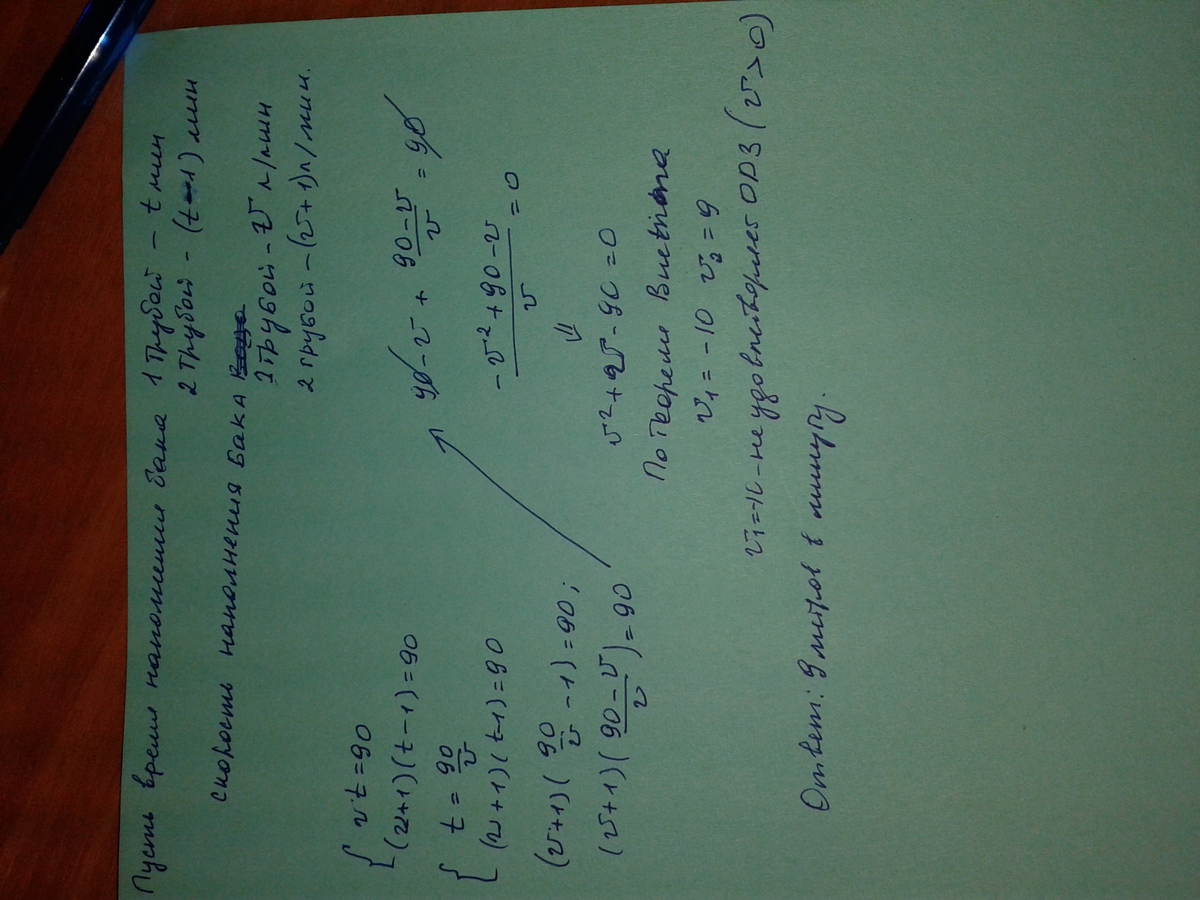 Пусть время наполнения бака 1 трубой – t мин
2 трубой – (t-1) мин
скорость наполнения бака
1 трубой – v л/мин
2 трубой – (v+1) л/мин.
{ v·t=90
(v+1)(t-1)=90
{ t = 90/v
(v+1)(t-1)=90
(v+1)(90/v - 1)=90;
(v+1)((90-v)/v)=90
90 - v + (90-v)/v = 90
(-v²+90-v)/v = 0
⇓
v²+v-90=0
По теореме Виета
v₁=-10 v₂=9
v₁=-10 - не удовлетворяет ОДЗ (v>0)
Ответ: 9 литров в минуту.